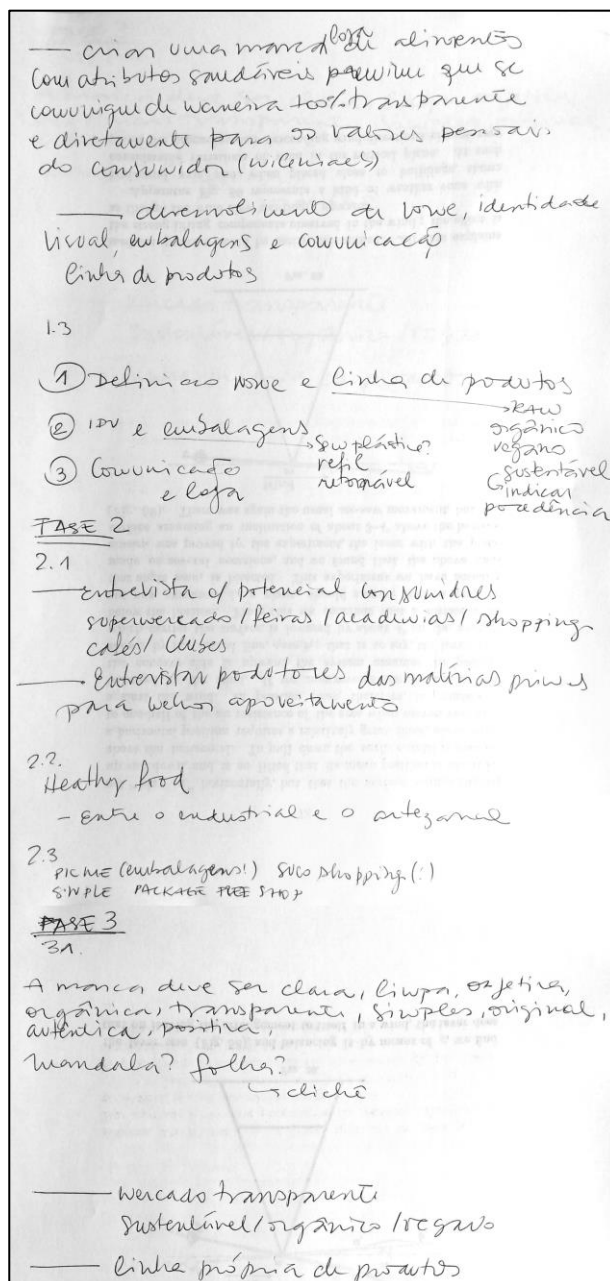 — criar uma marca loja de alimentos
com atributos saudáveis premium que se
comunique de maneira 100% transparente
e diretamente para os valores pessoais
do consumidor (milenials)
— desenvolvimento de nome, identidade
visual, embalagens e comunicação
linha de produtos
1.3
① Definicao nome e linha de produtos
→ RAW
orgânico
vegano
sustentável
indicar
procedência
② IDV e embalagens
→ sem plástico?
refil
retornável
③ Comunicação
e loja
FASE 2
2.1
— entrevista c/ potencial consumidores
supermercado / feiras / academias / shopping
cafés / clubes
— Entrevistar produtores das matérias primas
para melhor aproveitamento
2.2.
Heathy food
- Entre o industrial e o artezanal
2.3
(embalagens!) suco shopping (!)
SIMPLE PACKAGE FREE SHOP
FASE 3
3.1.
A marca deve ser clara, limpa, objetiva,
orgânica, transparente, simples, original,
autêntica, positiva,
Mandala? folha?
↳ clichê
— mercado transparente
sustentável / orgânico / vegano
— linha própria de produtos